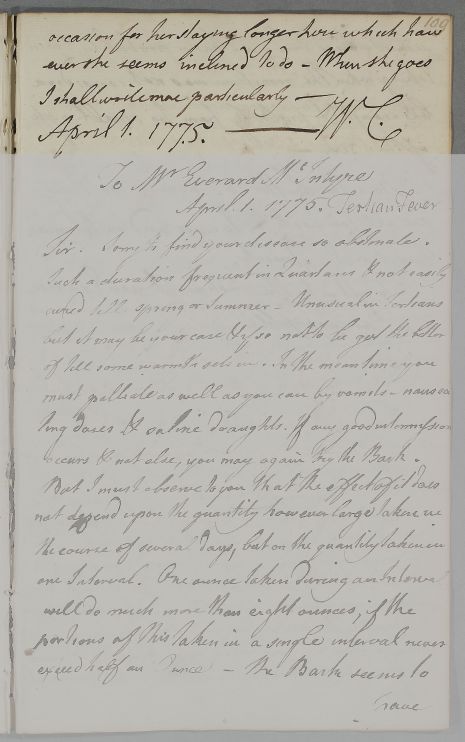 109
occasion for her staying longer here which how
ever she seems inclined to do – When she goes
I shall write more particularly –
April 1. 1775. — W. C.
To Mr Everard Mc Intyre
April. 1. 1775. Tertian Fever
Sir. Sorry to find your disease so obstinate.
Such a duration frequent in Quartans & not easily
cured till spring or summer – Unusual in Tertians
but it may be your case & if so not to be got the better
of till some warmth sets in. In the mean time you
must palliate as well as you can by vomits – nausea
ting doses & saline draughts. If any good intermission
occurs & not else, you may again try the Bark.
But I must observe to you that the effect of it does
not depend upon the quantity however large taken in
the course of several days, but on the quantity taken in
one Interval. One ounce taken during an Interval
will do much more than eight ounces, if the
portions of this taken in a single interval never
exceed half an Ounce – the Bark seems to
have